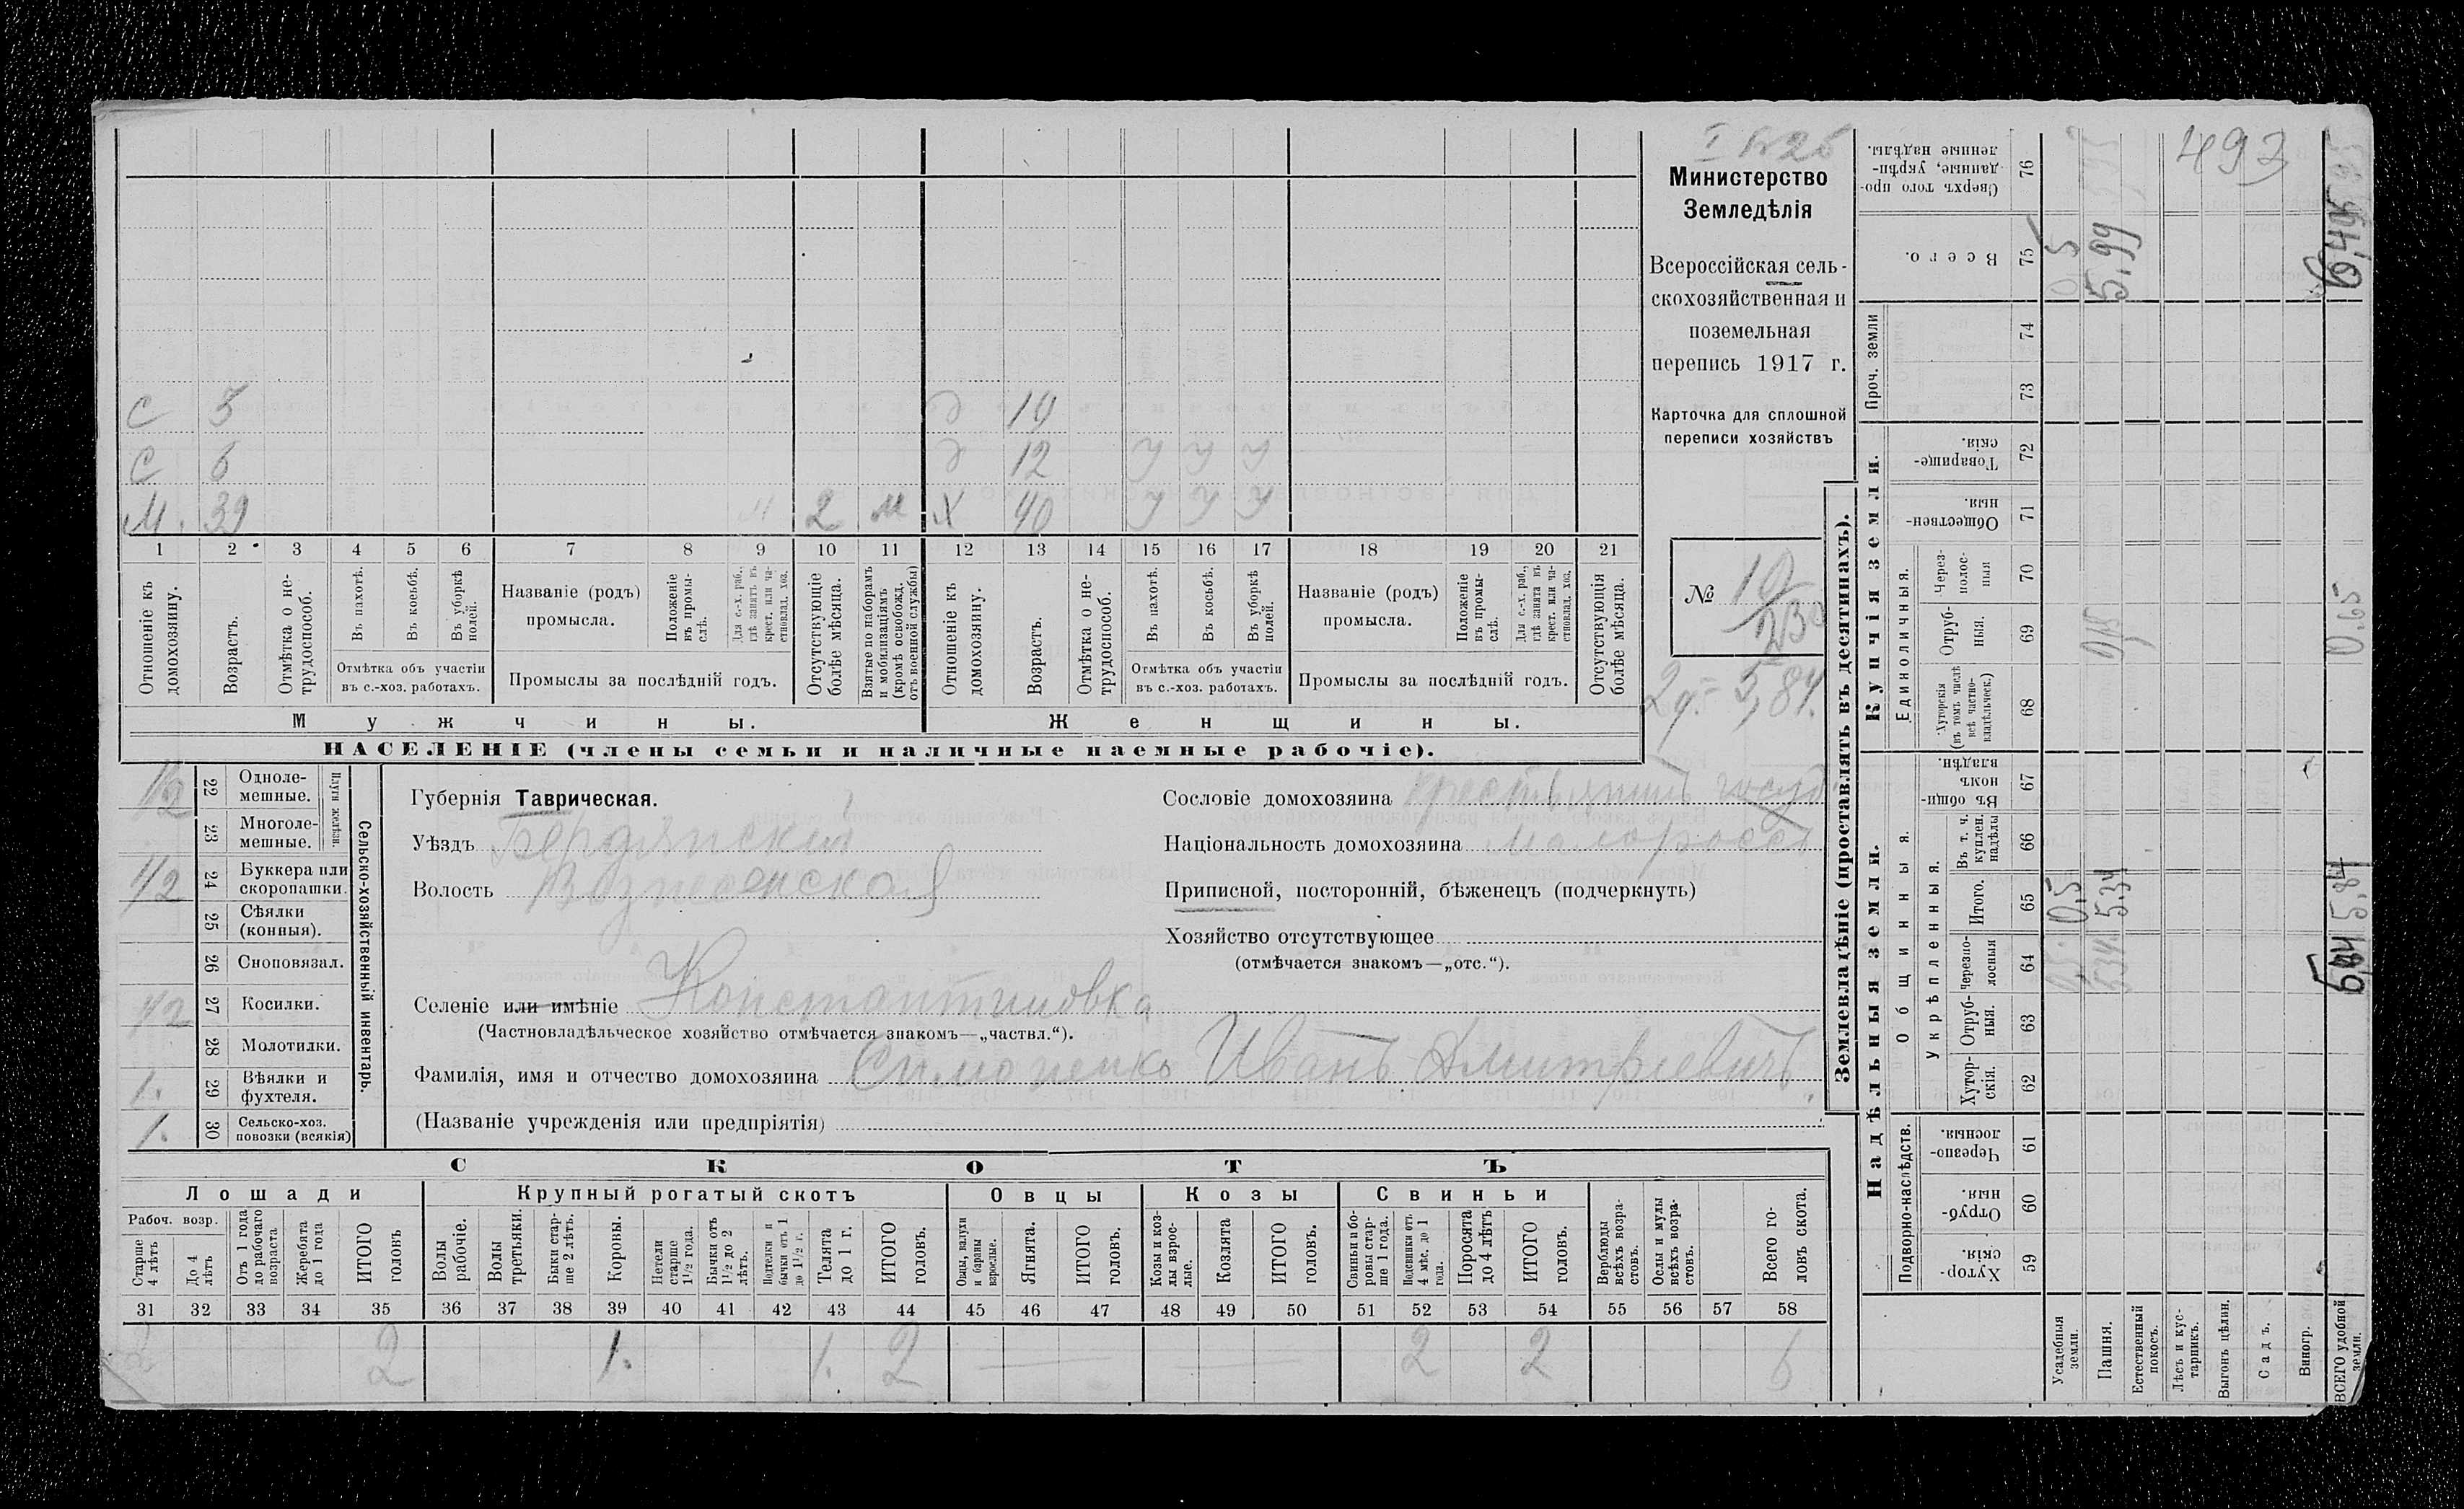 Министерство
Земледѣлія
Всероссійская сель-
скохозяйственная и
поземельная
перепись 1917 г.
Карточка для сплошной
переписи хозяйствъ
№ 10
2 д. = 5,84.
493
С 5 Д 10
С 6 Д 12 У У У
М. 39 2 м Х 40 У У У
1 2 3 4 5 6 7 8 9 10 11 12 13 14 15 16 17 18 19 20 21
Отношеніе къ домохозяину.
Возрастъ.
Отмѣтка о не-трудоспособ.
Въ пахотѣ.
Въ косьбѣ.
Въ уборкѣ полей.
Отмѣтка объ участіи
въ с.-хоз. работахъ.
Названіе (родъ)
промысла.
Положеніе въ промы-слѣ.
Для с.-х. раб., гдѣ занятъ въ крест. или ча-стновлад. хоз.
Промыслы за послѣдній годъ.
Отсутствующіе болѣе мѣсяца.
Взятые по наборамъ и мобилизаціямъ (кромѣ освобожд. отъ военной службы)
Отношеніе къ домохозяину.
Возрастъ.
Отмѣтка о не-трудоспособ.
Въ пахотѣ.
Въ косьбѣ.
Въ уборкѣ полей.
Отмѣтка объ участіи
въ с.-хоз. работахъ.
Названіе (родъ)
промысла.
Положеніе въ промы-слѣ.
Для с.-х. раб., гдѣ занята въ крест. или ча-стновлад. хоз.
Промыслы за послѣдній годъ.
Отсутствующія болѣе мѣсяца.
Мужчины. Женщины.
НАСЕЛЕНІЕ (члены семьи и наличные наемные рабочіе).
Сельско-хозяйственный инвентарь.
Плуги желѣзн.
1/2 22 Одноле-мешные.
23 Многоле-мешные.
1/2 24 Буккера или скоропашки.
25 Сѣялки (конныя).
26 Сноповязал.
1/2 27 Косилки.
28 Молотилки.
1. 29 Вѣялки и фухтеля.
1. 30 Сельско-хоз. повозки (всякія)
Губернія Таврическая.
Уѣздъ Бердянскій
Волость Вознесенская
Сословіе домохозяина крестьянинъ госуд
Національность домохозяина малороссъ
Приписной, посторонній, бѣженецъ (подчеркнуть)
Хозяйство отсутствующее
(отмѣчается знакомъ—„отс.“).
Селеніе или имѣніе Константиновка
(Частновладѣльческое хозяйство отмѣчается знакомъ—„частвл.“).
Фамилія, имя и отчество домохозяина Симоненко Иванъ Дмитріевичъ
(Названіе учрежденія или предпріятія)
СКОТЪ
Лошади Крупный рогатый скотъ Овцы Козы Свиньи
Рабоч. возр.
Старше 4 лѣтъ
До 4 лѣтъ
Отъ 1 года до рабочаго возраста
Жеребята до 1 года
ИТОГО головъ
Волы рабочіе.
Волы третьяки.
Быки стар-ше 2 лѣтъ.
Коровы.
Нетели старше 1 1/2 года.
Бычки отъ 1 1/2 до 2 лѣтъ.
Подтелки и бычки отъ 1 до 1 1/2 г.
Телята до 1 г.
ИТОГО головъ.
Овцы, валухи и бараны взрослые.
Ягнята.
ИТОГО головъ.
Козы и коз-лы взрос-лые.
Козлята
ИТОГО головъ.
Свиньи и бо-ровы стар-ше 1 года.
Подсвинки отъ 4 мѣс. до 1 года.
Поросята до 4 лѣтъ
ИТОГО головъ.
Верблюды всѣхъ возра-стовъ.
Ослы и мулы всѣхъ возра-стовъ.
Всего го-ловъ скота.
31 32 33 34 35 36 37 38 39 40 41 42 43 44 45 46 47 48 49 50 51 52 53 54 55 56 57 58
2 2 1. 1. 2 — — 2 2 6
Землевладѣніе (проставлять въ десятинахъ).
Купчія земли.
Надѣльныя земли.
Сверхъ того про-данные, укрѣп-ленные надѣлы. 76
Всего. 75 0,5 5,99 6,49
Проч. земли 74 73
Товарище-скія. 72
Обществен-ныя. 71
Единоличныя.
Через-полос-ныя 70
Отруб-ныя. 69 0,65
Хуторскія (въ томъ числѣ всѣ частно-владѣльческ.) 68
Общинныя.
Въ общи-номъ владѣн. 67
Укрѣпленныя.
Въ т. ч. куплен. надѣлы 66
Итого. 65 0,5 5,34 5,84
Черезпо-лосныя 64 0,5 5,34
Отруб-ныя. 63
Хутор-скія. 62
Подворно-наслѣдств.
Черезпо-лосныя. 61
Отруб-ныя. 60
Хутор-скія. 59
Усадебныя земли.
Пашня.
Естественный покосъ.
Лѣсъ и кус-тарникъ.
Выгонъ цѣлин.
Садъ.
Виногр.
ВСЕГО удобной земли.